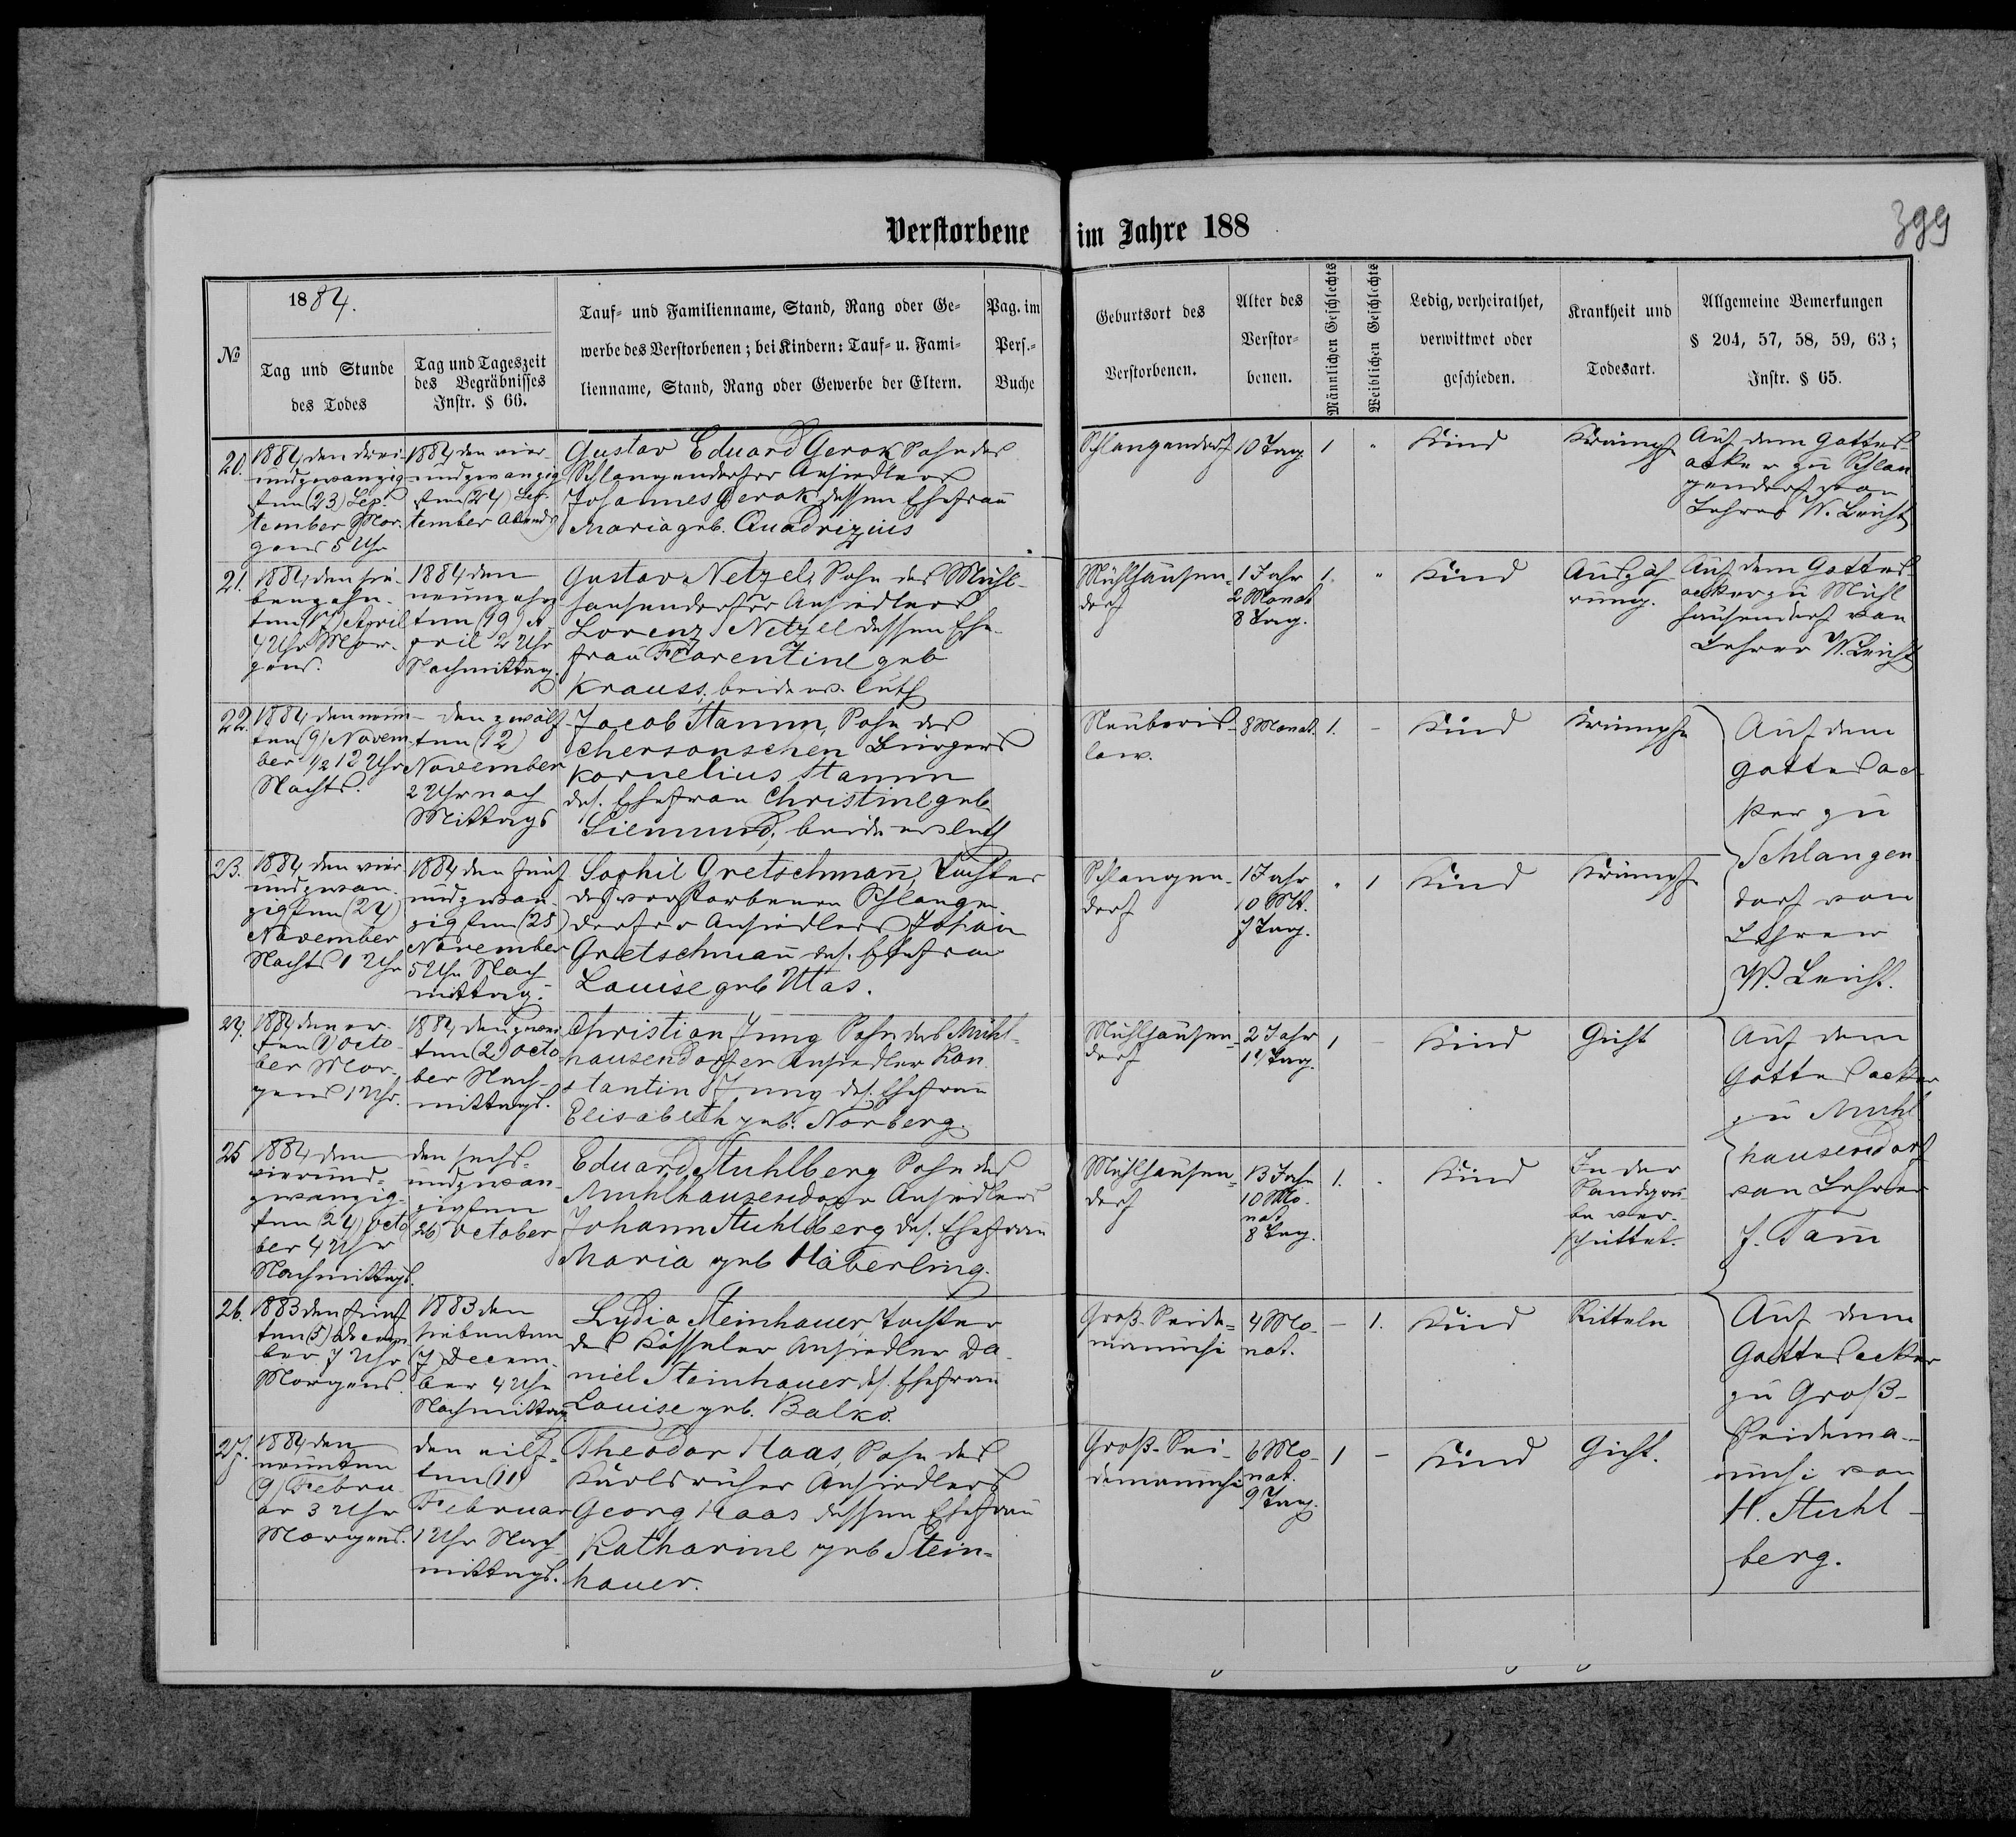 Verstorbene im Jahre 188
399
№
1884.
Tag und Stunde
des Todes
Tag und Tageszeit
des Begräbnisses
Instr. § 66.
Tauf- und Familienname, Stand, Rang oder Ge-
werbe des Verstorbenen; bei Kindern: Tauf- u. Fami-
lienname, Stand, Rang oder Gewerbe der Eltern.
Pag. im
Pers.-
Buche
Geburtsort des
Verstorbenen.
Alter des
Verstor-
benen.
Männlichen Geschlechts
Weiblichen Geschlechts
Ledig, verheirathet,
verwittwet oder
geschieden.
Krankheit und
Todesart.
Allgemeine Bemerkungen
§ 204, 57, 58, 59, 63;
Instr. § 65.
20.
1884 den drei-
undzwanzig
sten (23) Sep-
tember Mor-
gens 5 Uhr
1884 den vier-
undzwanzig
sten (24) Sep-
tember Abends
Gustav Eduard Gerok Sohn des
Schlangendorfer Ansiedlers
Johannes Gerok dessen Ehefrau
Maria geb. Quadrizius
Schlangendorf
10 Tag
1
"
Kind
Krämpfe
Auf dem Gottes
acker zu Schlan
gendorf von
Lehrer W. Leicht
21.
1884 den sie-
benzehn-
ten (17) April
4 Uhr Mor-
gens.
1884 den
neunzehn
ten (19) A-
pril 2 Uhr
Nachmittag.
Gustav Netzel, Sohn des Mühl-
hausendorfer Ansiedlers
Lorenz Netzel dessen Ehe-
frau Florentine geb
Krauss. beide ev. luth
Mühlhausen-
dorf
1 Jahr
2 Monat
8 Tag.
1.
"
Kind
Auszäh
rung.
Auf dem Gottes
acker zu Mühl
hausendorf von
Lehrer W. Leicht
22.
1884 den neun
ten (9) Novem
ber 1/2 12 Uhr
Nachts.
- den zwölf
ten (12)
November
2 Uhr nach
Mittags
Jacob Stamm, Sohn des
chersonschen Bürgers
Kornelius Stamm
des. Ehefrau Christine geb.
Siemund, beide ev luth
Neuboris-
law.
8 Monat.
1.
-
Kind
Krämpfe
Auf dem
Gottesac
ker zu
Schlangen
dorf von
Lehrer
W. Leicht.
23.
1884 den vier
undzwan-
zigsten (24)
November
Nachts 1 Uhr
1884 den fünf
undzwan-
zigsten (25)
November
5 Uhr Nach
mittag.
Sophie Gretschmañ, Tochter
des verstorbenen Schlangen
dorfer Ansiedlers Johan
Gretschmañ des. Ehefrau
Louise geb Utas.
Schlangen-
dorf
1 Jahr
10 Mt.
7 Tag.
"
1
Kind
Krämpfe
24.
1884 den er-
sten (1) Octo-
ber Mor-
gens 1 Uhr.
1884 den zwei
ten (2) Octo-
ber Nach-
mittags.
Christian Jung Sohn des Mühl-
hausendorfer Ansiedler Kon
stantin Jung des. Ehefrau
Elisabeth geb. Norberg.
Mühlhausen-
dorf
2 Jahr
1
-
Kind
Gicht
Auf dem
Gottesacker
zu Muhl
hausendorf
von Lehrer
25
1884 den
vierund-
zwanzig-
sten (24) Octo
ber 4 Uhr
Nachmittags.
den sechs-
undzwan-
zigsten
26) October
Eduard Stuhlberg Sohn des
Muhlhausendorfer Ansiedlers
Johann Stuhlberg des. Ehefrau
Maria geb Häberling.
Mühlhausen-
dorf
13 Jahr
10 Mo-
nat
8 Tag.
1.
.
Kind
In der
Sandgru-
be ver-
schüttet.
26.
1883 den fünf
ten (5) Decem
ber 7 Uhr
Morgens.
1883 den
siebenten
(7) Decem-
ber 4 Uhr
Nachmittag
Lydia Steinhauer Tochter
des Kässeler Ansiedler Da-
niel Steinhauer des. Ehefrau
Louise geb. Balko.
Groß-Seide-
minuschi
4 Mo-
nat.
-
1.
Kind
Ritteln
Auf dem
Gottesacker
zu Groß-
Seidema-
nuschi von
H. Stuhl-
berg.
27.
1884 den
neunten
9) Febru-
ar 3 Uhr
Morgens.
den eilf-
ten (11)
Februar
1 Uhr Nach-
mittags.
Theodor Haas, Sohn des
Karlsruher Ansiedlers
Georg Haas dessen Ehefrau
Katharine geb Stein-
hauer.
Groß-Sei-
demanuschi
6 Mo-
nat.
9 Tag.
1
-
Kind
Gicht.